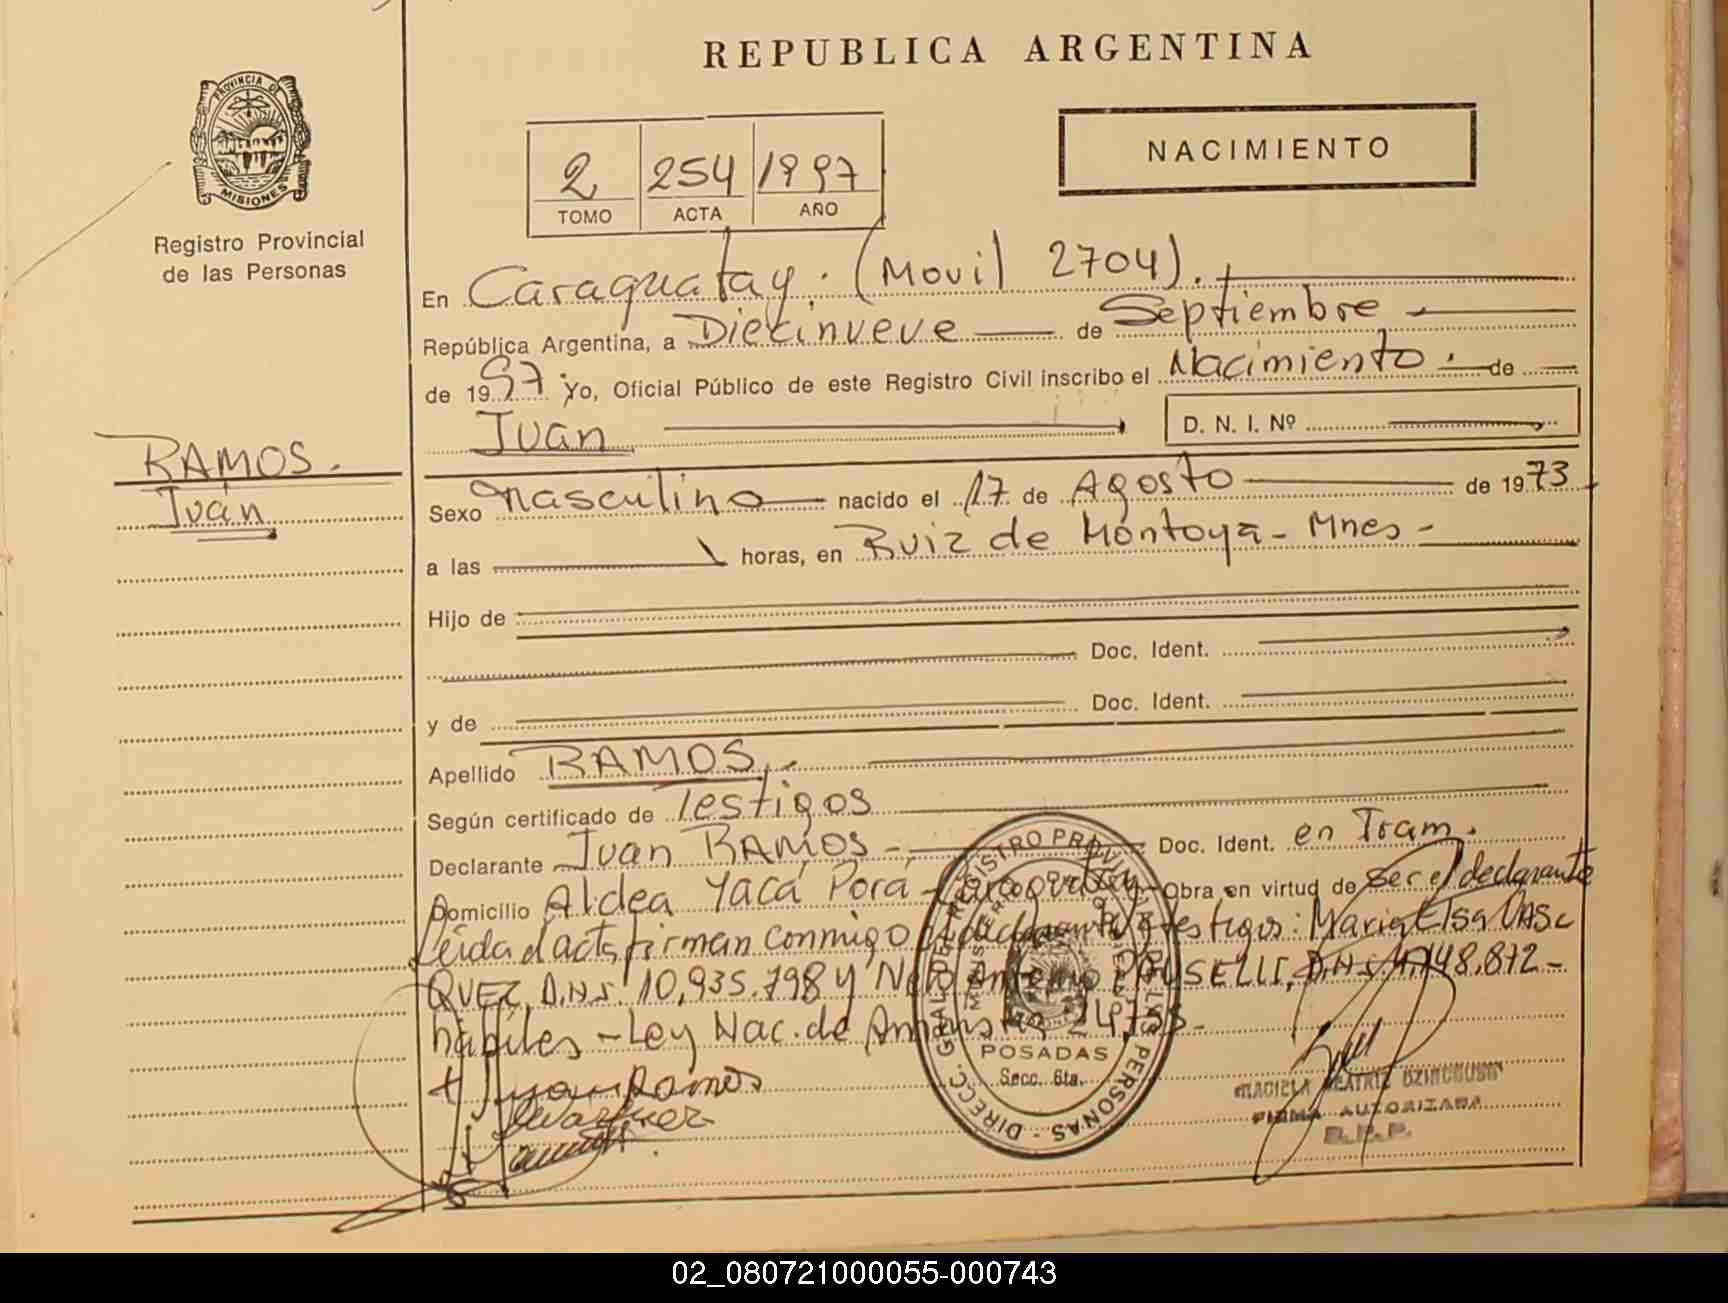 REPUBLICA ARGENTINA
PROVINCIA DE MISIONES
Registro Provincial
de las Personas
2 TOMO
254 ACTA
1997 AÑO
NACIMIENTO
En Caraguatay. (Movil 2704).
República Argentina, a Diecinueve de Septiembre
de 1997 Yo, Oficial Público de este Registro Civil inscribo el Nacimiento de
Juan D. N. I. Nº
RAMOS.
Juan
Sexo Masculino nacido el 17 de Agosto de 1973
a las horas, en Ruiz de Montoya - Mnes -
Hijo de
Doc. Ident.
y de Doc. Ident.
Apellido RAMOS.
Según certificado de Testigos
Declarante Juan RAMOS - Doc. Ident. en Tram.
Domicilio Aldea Yacá Porá - Caraguatay - Obra en virtud de ser el declarante
Leída el acta, firman conmigo el declarante y testigos: Maria Elsa VASc
QUEZ, D.N.I. 10,935.798 y Antonio PAUSELLI, D.N.I.
habiles - Ley Nac. de
Juan Ramos
POSADAS
Secc. 6ta.
DIRECC. GRAL. DEL REGISTRO PROVINCIAL DE LAS PERSONAS
FIRMA AUTORIZADA
R.P.P.
02_080721000055-000743